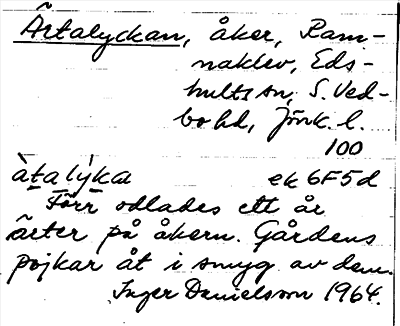 Ärtalyckan, åker, Ram-
naklev, Eds-
hults sn, S. Ved-
bo hd, Jönk. l.
100
ä̀talýka ek 6F5d
Förr odlades ett år
ärter på åkern. Gårdens
pojkar åt i smyg av dem.
Inger Danielsson 1964.